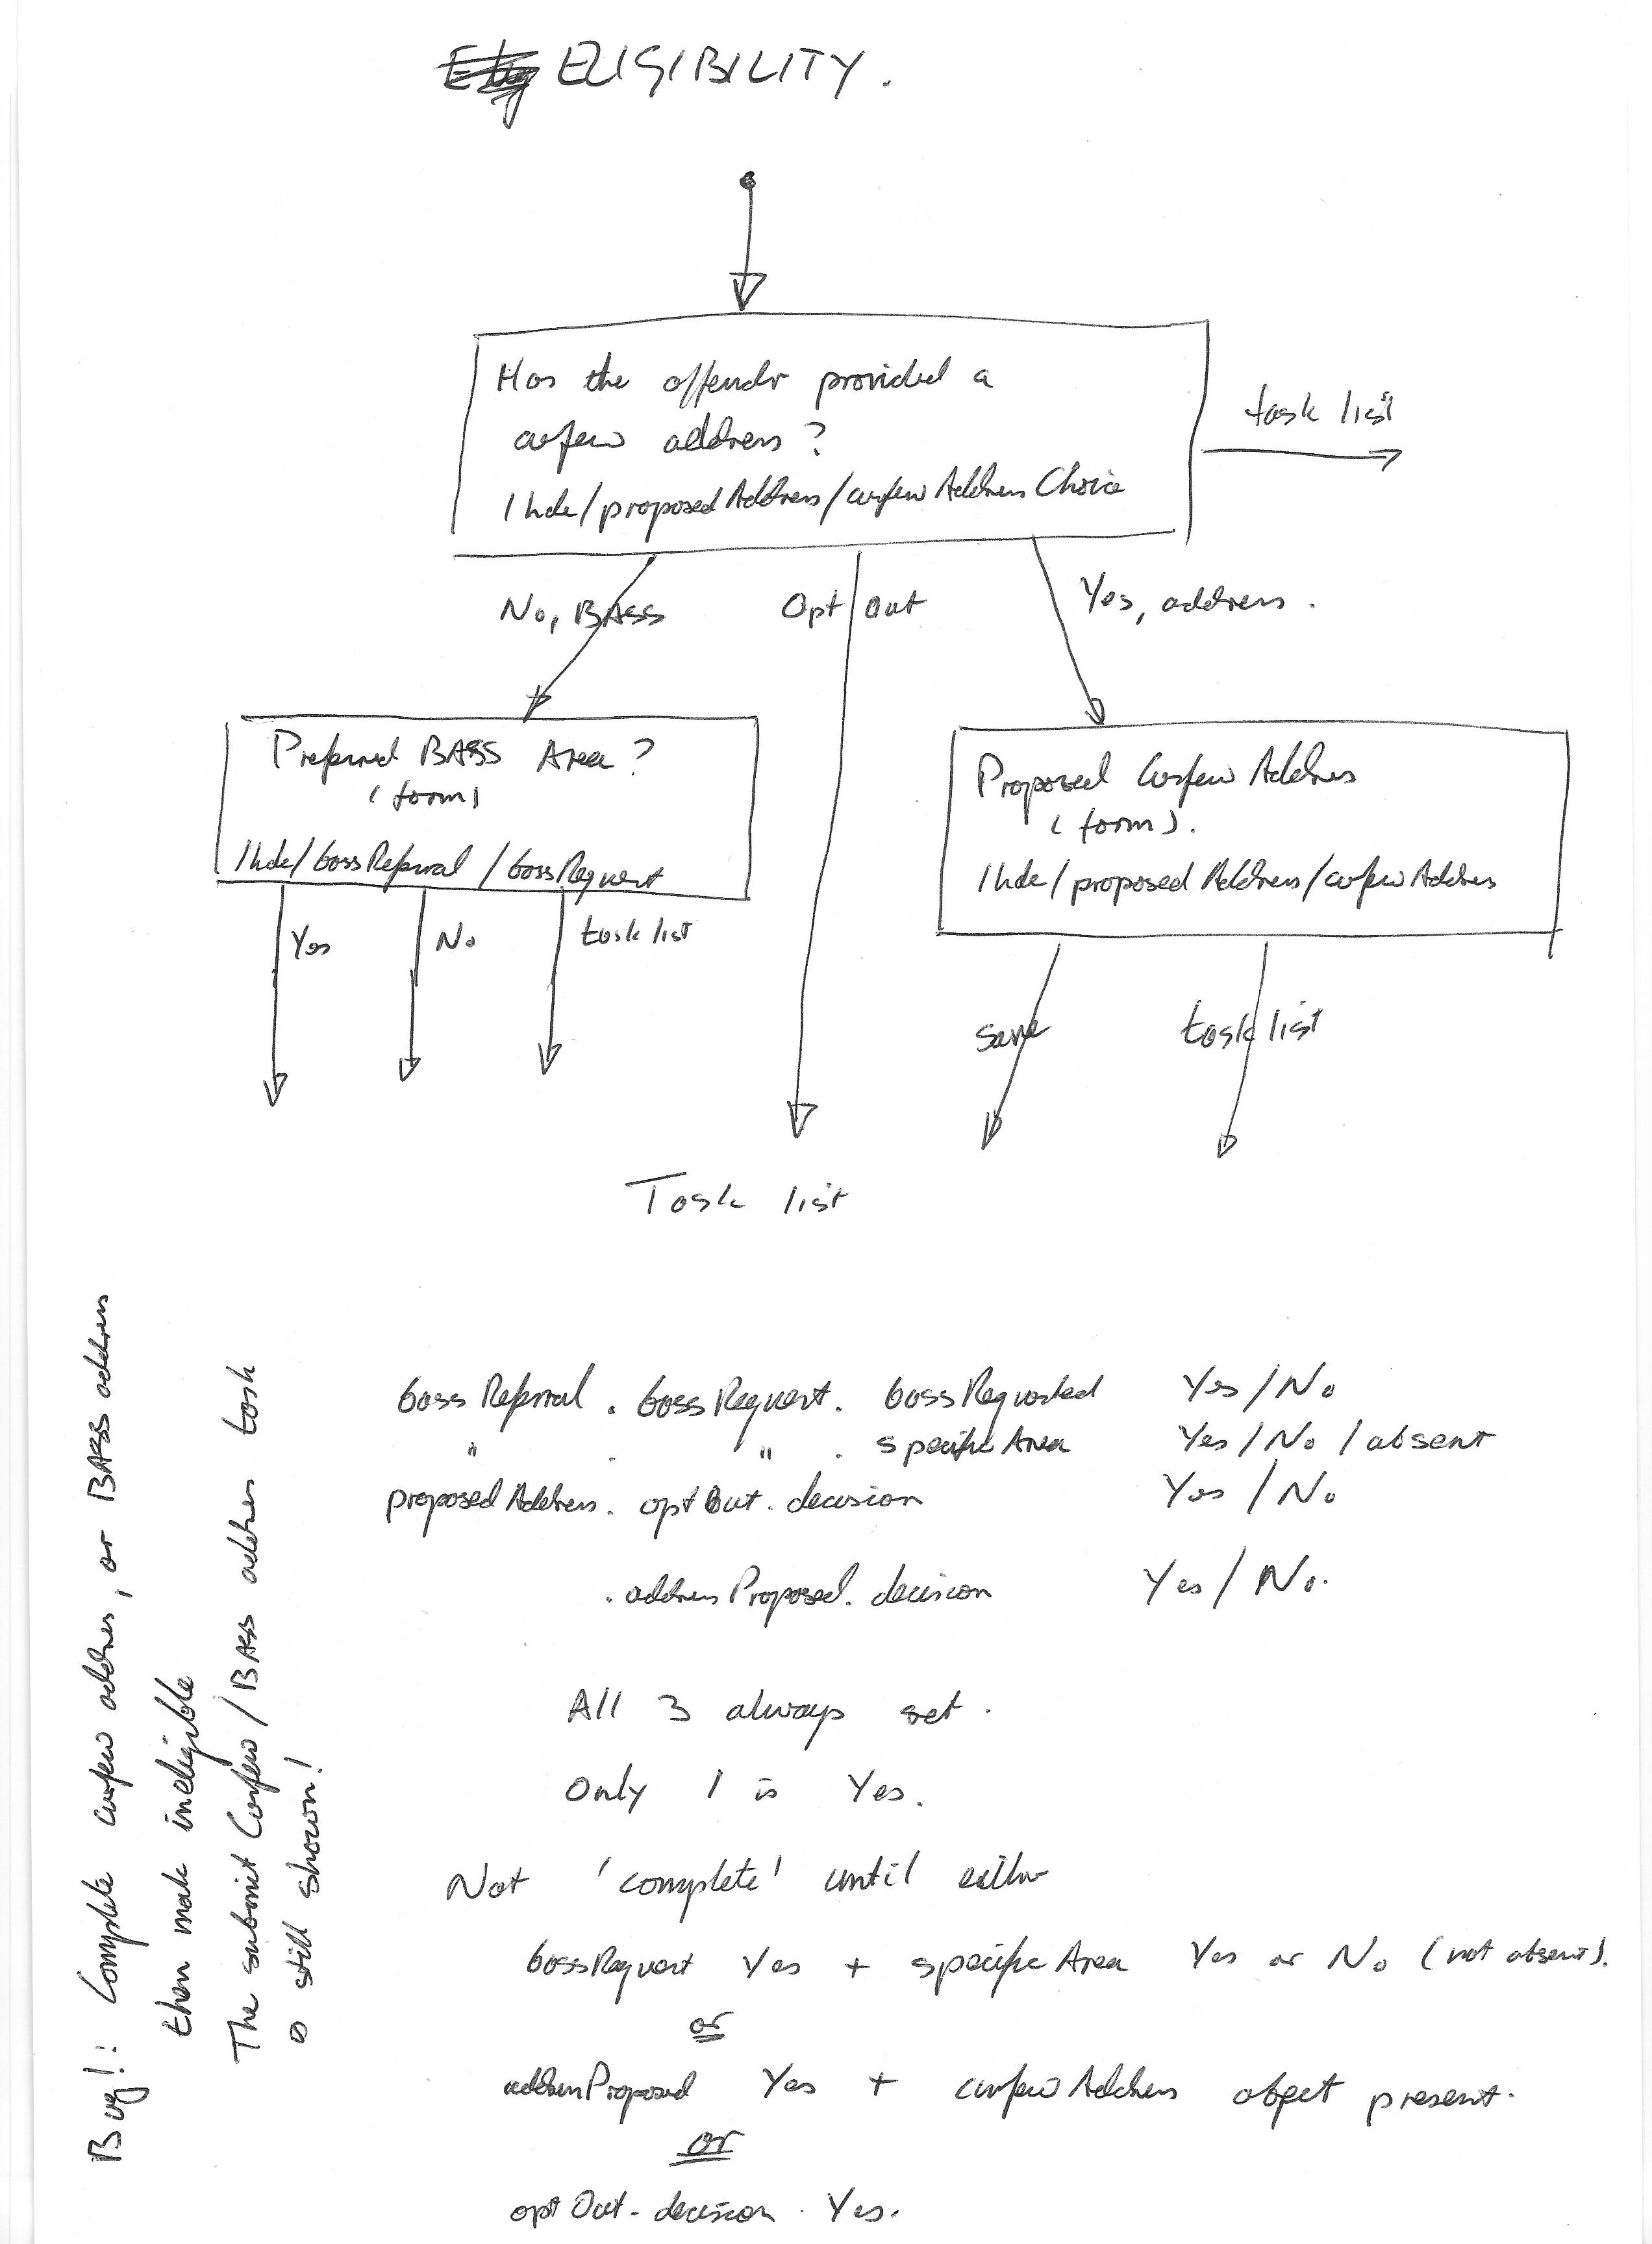 ELIGIBILITY.
Has the offender provided a
curfew address?
/hdc/proposedAddress/curfewAddressChoice
task list
No, BASS
Opt out
Yes, address.
Preferred BASS Area?
(form)
/hdc/bassReferral/bassRequest
Proposed Curfew Address
(form).
/hdc/proposedAddress/curfewAddress
Yes
No
task list
save
task list
Task list
bassReferral . bassRequest . bassRequested Yes/No
" . " . specificArea Yes/No/absent
proposedAddress . optOut . decision Yes/No
. addressProposed . decision Yes/No.
All 3 always set.
Only 1 is Yes.
Not 'complete' until either
bassRequest Yes + specificArea Yes or No (not absent).
or
addressProposed Yes + curfewAddress object present.
or
optOut - decision . Yes.
Bug!: Complete curfew address, or BASS address
then make ineligible
The submit Curfew/BASS address task
is still shown!